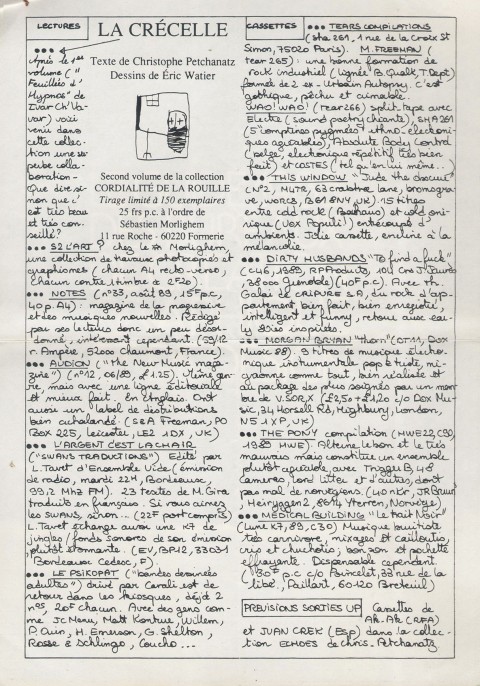 LECTURES
●●●
Après le 1er
volume ("
Feuilles d'
Hypnos" de
Ivar Ch'Va-
var) voici
venu dans
cette collec-
tion une su-
perbe colla-
boration.
Que dire si-
non que c'
est très beau
et très con-
seillé?
LA CRÉCELLE
Texte de Christophe Petchanatz
Dessins de Éric Watier
Second volume de la collection
CORDIALITÉ DE LA ROUILLE
Tirage limité à 150 exemplaires
25 frs p.c. à l'ordre de
Sébastien Morlighem
11 rue Roche - 60220 Formerie
●●● S2 L'ART? chez le Morlighem,
une collection de travaux photocopiés et
graphismes (chacun A4 recto-verso,
chacun contre 1 timbre à 2F20).
●●● NOTES (n°33, août 89, 15F p.c.,
40 p. A4) : magazine de la progressive
et des musiques nouvelles. Rédigé
par ses lecteurs donc un peu désor-
donné, intéressant cependant. (59/12
r. Ampère, 52000 Chaumont, France).
●●● AUDION ("the New Music maga-
zine") (n°12, 06/89, £1.25). Même gen-
re, mais avec une ligne éditoriale
et mieux fait. En Anglais. Ont
aussi un label de distributions
bien achalandé. (S&A Freeman, PO
Box 225, Leicester, LE2 1DX, UK)
●●● L'ARGENT C'EST LA CHAIR
("SWANS TRADUCTIONS") Edité par
L. Taret d'Ensemble Vide (émission
de radio, mardi 22H, Bordeaux,
99,2 Mhz FM). 23 textes de M. Gira
traduits en français. Si vous aimez
les SWANS, sinon... (22F port compris)
L. Taret échange aussi une K7 de
jingles/fonds sonores de son émission
plutôt étonnante. (EV, BP12, 33031
Bordeaux Cedex, F).
●●● LE PSIKOPAT ("bandes dessinées
adultes") drivé par Carali est de
retour dans les kiosques, déjà 2
nos, 20F chacun. Avec des gens com-
me JC Menu, Matt Konture, Willem,
P. Ouin, H. Emerson, G. Shelton,
Rosse & Schlingo, Coucho...
CASSETTES
●●● TEARS COMPILATIONS
(sta 261, 1 rue de la Croix St
Simon, 75020 Paris). M. FREEMAN (
tear 265) : une bonne formation de
rock industriel (lignée B. Qualk, T. Dept)
formée de 2 ex-Urbain Autopsy. c'est
gothique, pêchu et aimable.
WAO! WAO! (tear 266) split tape avec
Electre (sound poetry chiante), SHA 261
(5 "comptines pygmées" ethno-électroni-
ques agréables), Absolute Body Control
(belge, électronique répétitif très bien
fait) et COSTES (tel qu'en lui même...)
●●● THIS WINDOW "Jude the obscure"
(N°2, MUTR, 63 crabtree lane, bromsgro-
ve, worcs, B61 8NY, UK). 15 titres
entre cold rock (Bauhaus) et cold oni-
rique (Vox Populi!) entrecoupés d'
ambients. Jolie cassette, encline à la
mélancolie.
●●● DIRTY HUSBANDS "To find a fuck"
(C46, 1989, RP Products, 104 Crs J. Jaurès
38000 Grenoble) (40F p.c.). Avec Th.
Galai de CRIAVRE S.A., du rock d'ap-
partement, bien fait, bien enregistré,
intelligent et funny, retour aux ear-
ly 80ies inspirés.
●●● MORGAN BRYAN "Thorn" (DT 11, Dox
Music 88). 9 titres de musique électro-
nique instrumentale pop & triste, mi-
gnonne comme tout, bien réalisée et
au package des plus soignés par un mem-
bre de V.SOR,X (£2,50 + £1,20 c/o Dox Mu-
sic, 34 Horsell Rd, Highbury, London,
N5 1XP, UK)
●●● THE PONY compilation (HWE 22, C90,
1989 HWE). Alterne le bon et le très
mauvais mais constitue un ensemble
plutôt agréable, avec Trigger B, 48
Cameras, Lord Litter et d'autres, dont
pas mal de norvégiens. (40 nKr, JR Bruun
Heiryggen 2, 8614 Ytteren, Norvège)
●●● MEDICAL BUILDING "Le trait Noir"
(Lune K7, 89, C30) Musique bruitiste
très carnivore, mixages et cailloutis,
cris et chuchotis, bon son et pochette
effrayante. Dispensable cependant.
(30F p.c. c/o Poincelet, 33 rue de la
libé, Paillart, 60120 Breteuil)
PREVISIONS SORTIES UP
Cassettes de
AK-AK (RFA)
et JUAN CREK (Esp) dans la collec-
tion ECHOES de chris. Petchanatz